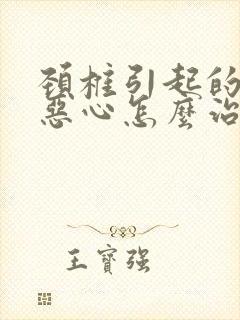 頚椎引起的
惡心怎麼治
王寶强